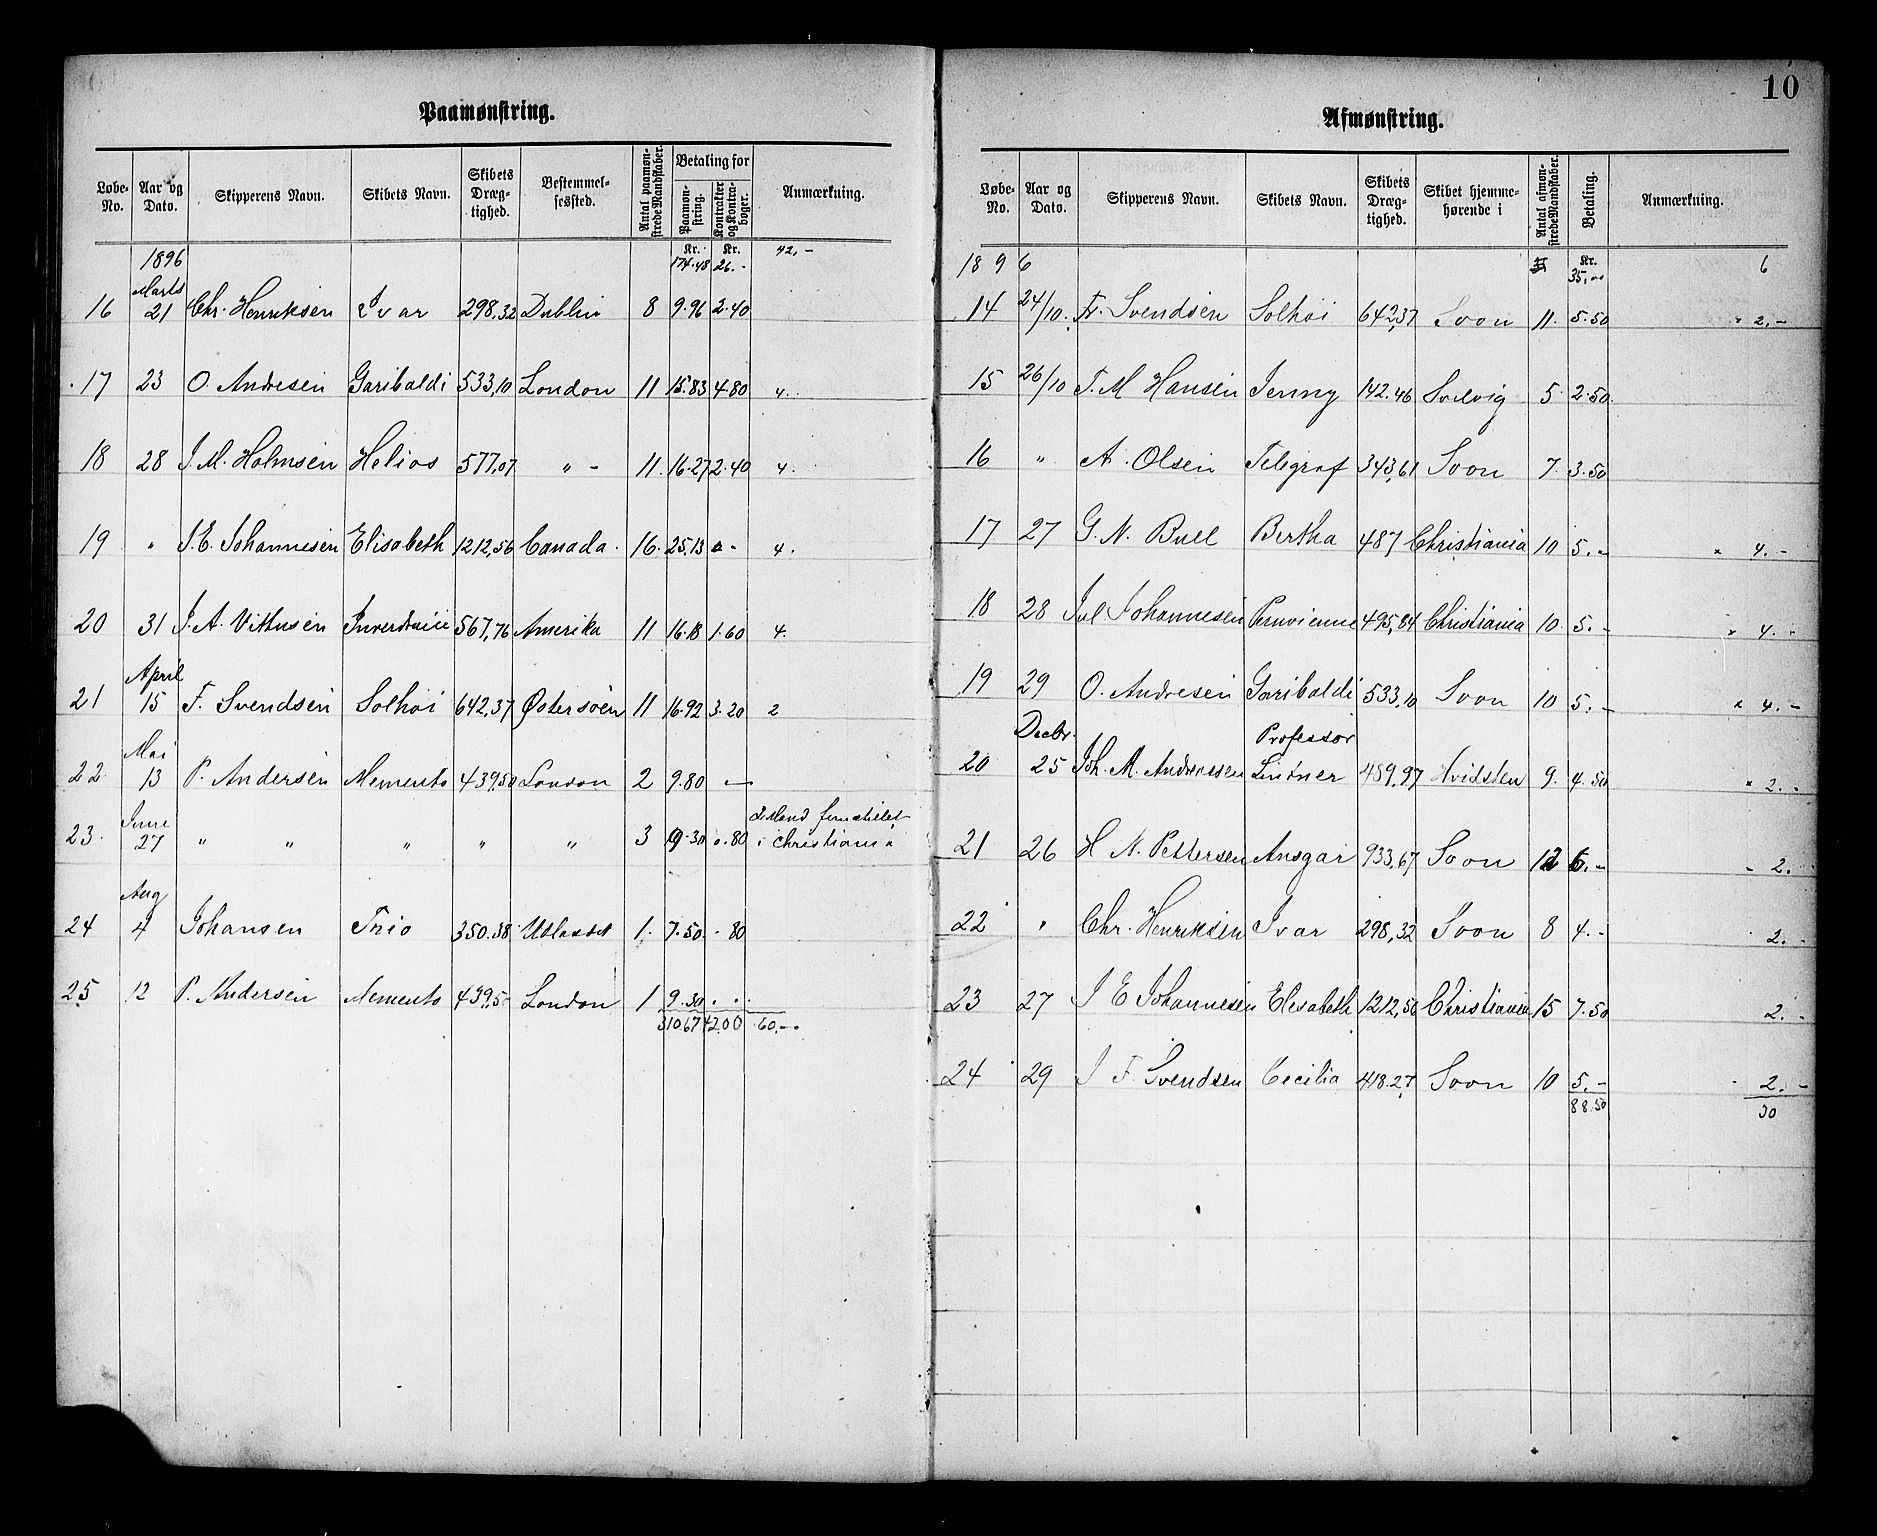 Paamønstring.
Løbe-No. | Aar og Dato. | Skipperens Navn. | Skibets Navn. | Skibets Dræg-tighed. | Bestemmel-sessted. | Antal paamøn-strede Mandskaber. | Betaling for Paamøn-string. | Kontrakter og Kontra-bøger. | Anmærkning.
1896 | Kr. 174.48 | Kr. 26.- | 42,-
16 | Marts 21 | Chr. Henriksen | Ivar | 298,32 | Dublin | 8 | 9.96 | 2.40
17 | 23 | O. Andresen | Garibaldi | 533,10 | London | 11 | 15.83 | 4.80 | 4.
18 | 28 | J. M. Holmsen | Helios | 577,07 | " - | 11 | 16.27 | 2.40 | 4.
19 | " | J. E. Johannesen | Elisabeth | 1212,56 | Canada | 16 | 25,13 | " - | 4.
20 | 31 | J. A. Vithusen | 567,76 | Amerika | 11 | 16.18 | 1.60 | 4.
21 | April 15 | F. Svendsen | Solhøi | 642,37 | Østersøen | 11 | 16.92 | 3.20 | 2
22 | Mai 13 | P. Andersen | Memento | 439,50 | London | 2 | 9.80 | —
23 | June 27 | " " | " | " | " | 3 | 9.30 | 0.80 | 2 Mand i Christiania
24 | Aug 4 | Johansen | Trio | 350.38 | 1 | 7.50 | - 80
25 | 12 | P. Andersen | Memento | 439,5 | London | 1 | 9.30 | . .
310 67 | 42.00 | 60.--
10
Afmønstring.
Løbe-No. | Aar og Dato. | Skipperens Navn. | Skibets Navn. | Skibets Dræg-tighed. | Skibet hjemme-hørende i | Antal afmøn-strede Mandskaber. | Betaling. | Anmærkning.
1896 | Kr. 35,00 | 6
14 | 24/10 | Fr. Svendsen | Solhøi | 642,37 | Soon | 11 | 5.50 | 2,-
15 | 26/10 | T. M Hansen | Jenny | 142.46 | Svelvig | 5 | 2.50
16 | " | A. Olsen | Telegraf | 343,61 | Soon | 7 | 3.50
17 | 27 | G. N. Bull | Bertha | 487 | Christiania | 10 | 5.- | × 4.-
18 | 28 | Jul Johannesen | Peruvienne | 495,84 | Christiania | 10 | 5.- | × 4.-
19 | 29 | O. Andresen | Garibaldi | 533,10 | Soon | 10 | 5.- | × 4.-
20 | Decbr. 25 | Joh. M. Andreasen | Professor Lintner | 489,97 | Hvidsten | 9 | 4.50 | × 2.-
21 | 26 | H N. Pettersen | Ansgar | 933,67 | Soon | 12 | 6.- | - 2.
22 | " | Chr. Henriksen | Ivar | 298,32 | Soon | 8 | 4.- | 2.-
23 | 27 | J E Johannesen | Elesabeth | 1212,56 | Christiania | 15 | 7.50 | 2.-
24 | 29 | J F. Svendsen | Cecilia | 418.27 | Soon | 10 | 5.- | 2.-
88.50 | 30